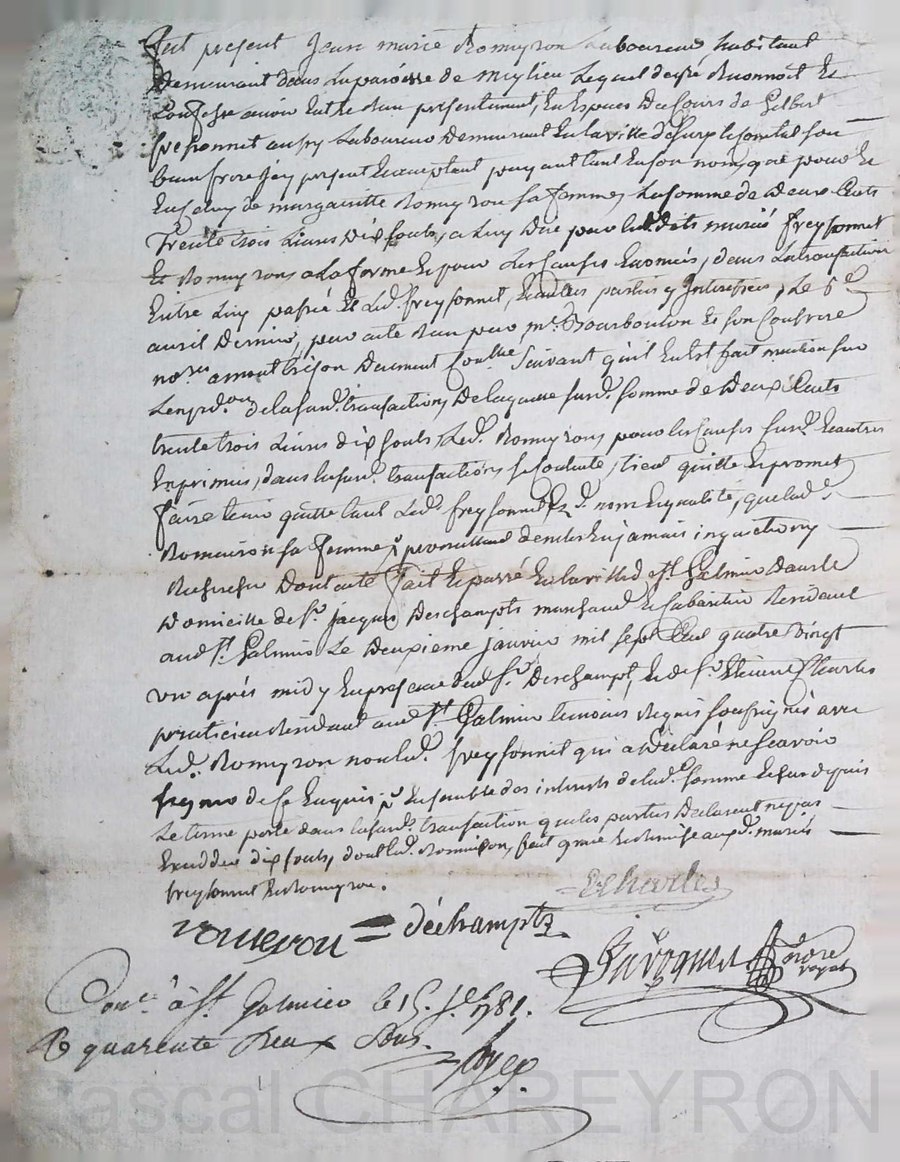 fut présent Jean marie Romeyron Laboureur habitant
Demeurant dans La paroisse de Meylieu Lequel de gré Reconnoit Et
Confesse avoir Entre Reçu présentement, En Espèces De Cours de Gilbert
freyssonnet aussy Laboureur Demeurant En la ville de Sury le Comtal son
beau frere Icy présent Et acceptant payant tant En son nom, que pour Et
En Celuy de margueritte Romeyron sa femme, La somme de Deux Cents
Trente trois Livres Dix Souls, a Luy Due par les dits mariés freyssonnet
Et Romeyron, a La forme Et pour Les Causes Enoncées, dans La transaction
Entre Luy passée Et Led. freyssonnet, Et autres parties y Interessées, Le 6e
avril Dernier, par acte Reçu par me. Bourboulon Et son Confrere
nores a montbrison Duement Controllé Suivant qu'il En Est fait mention sur
L'expdon. de la susd. transaction, De laquelle susd. somme de Deux Cents
trente trois Livres dix Souls, Led. Romeyron, pour les Causes susd. Et autres
Exprimées, dans la susd. transaction, se Contente, tient quitte Et promet
faire tenir quitte tant Led. freyssonnet Esd. nom Et qualité, que lad.
Romeiron sa femme, promettant de ne les En jamais inquietter ny
Rechercher Dont acte fait Et passé En la ville de St. Galmier Dans le
Domicille de Sr. jacques Deschampts marchand Et Cabaretier Resident
aud. St. Galmier Le Deuxieme janvier mil sept Cent quatre vingt
un après midy En presence dud. Sr. Deschampt, Et de Sr. Etienne Charles
praticien Resident aud. St. Galmier temoins Requis Soussignés avec
Led. Romeyron non led. freyssonnet qui a Déclaré ne Scavoir
signer de ce Enquis Ensemble des interets de lad. somme Echus depuis
Le terme porté dans la susd. transaction que les parties Declarent ne pas
Excedder dix souls, dont led. Romeyron, fait grace Et remise auxd. mariés
freyssonnet Et Romeyron.
E Charles
romeron = déchamptz
nore
royal
Conlé à St. Galmier le 15. Jer 1781.
R quarente Deux Sous.
Pascal CHAREYRON